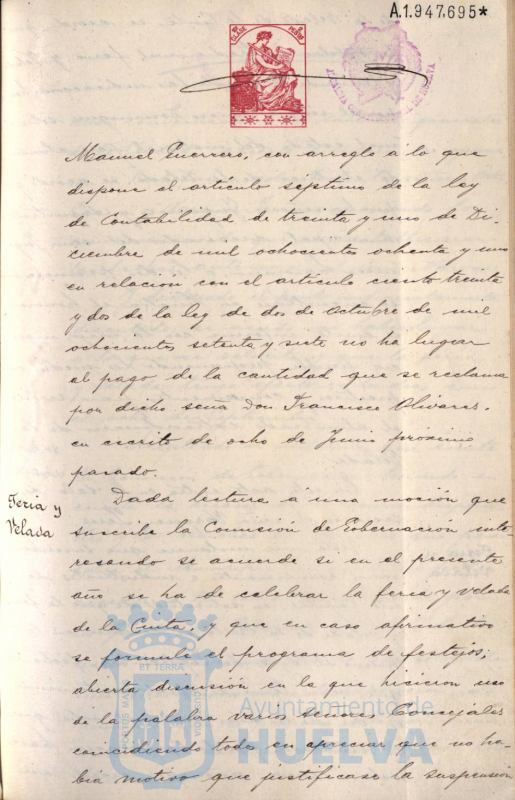 A.1.947.695*
CLASE
Manuel Guerrero, con arreglo á lo que
dispone el artículo séptimo de la ley
de Contabilidad de treinta y uno de Di-
ciembre de mil ochocientos ochenta y uno
en relación con el artículo ciento treinta
y dos de la ley de dos de Octubre de mil
ochocientos setenta y siete no ha lugar
al pago de la cantidad que se reclama
por dicho señor Don Francisco Olivares,
en escrito de ocho de Junio próximo
pasado.
Feria y
Velada
Dada lectura á una moción que
suscribe la Comisión de Gobernación inte-
resando se acuerde si en el presente
año se ha de celebrar la feria y velada
de la Cinta, y que en caso afirmativo
se formule el programa de festejos;
abierta discusión en la que hicieron uso
de la palabra varios señores Concejales
coincidiendo todos en apreciar que no ha-
bía motivo que justificase la suspensión
ET TERRÆ
Ayuntamiento de
HUELVA